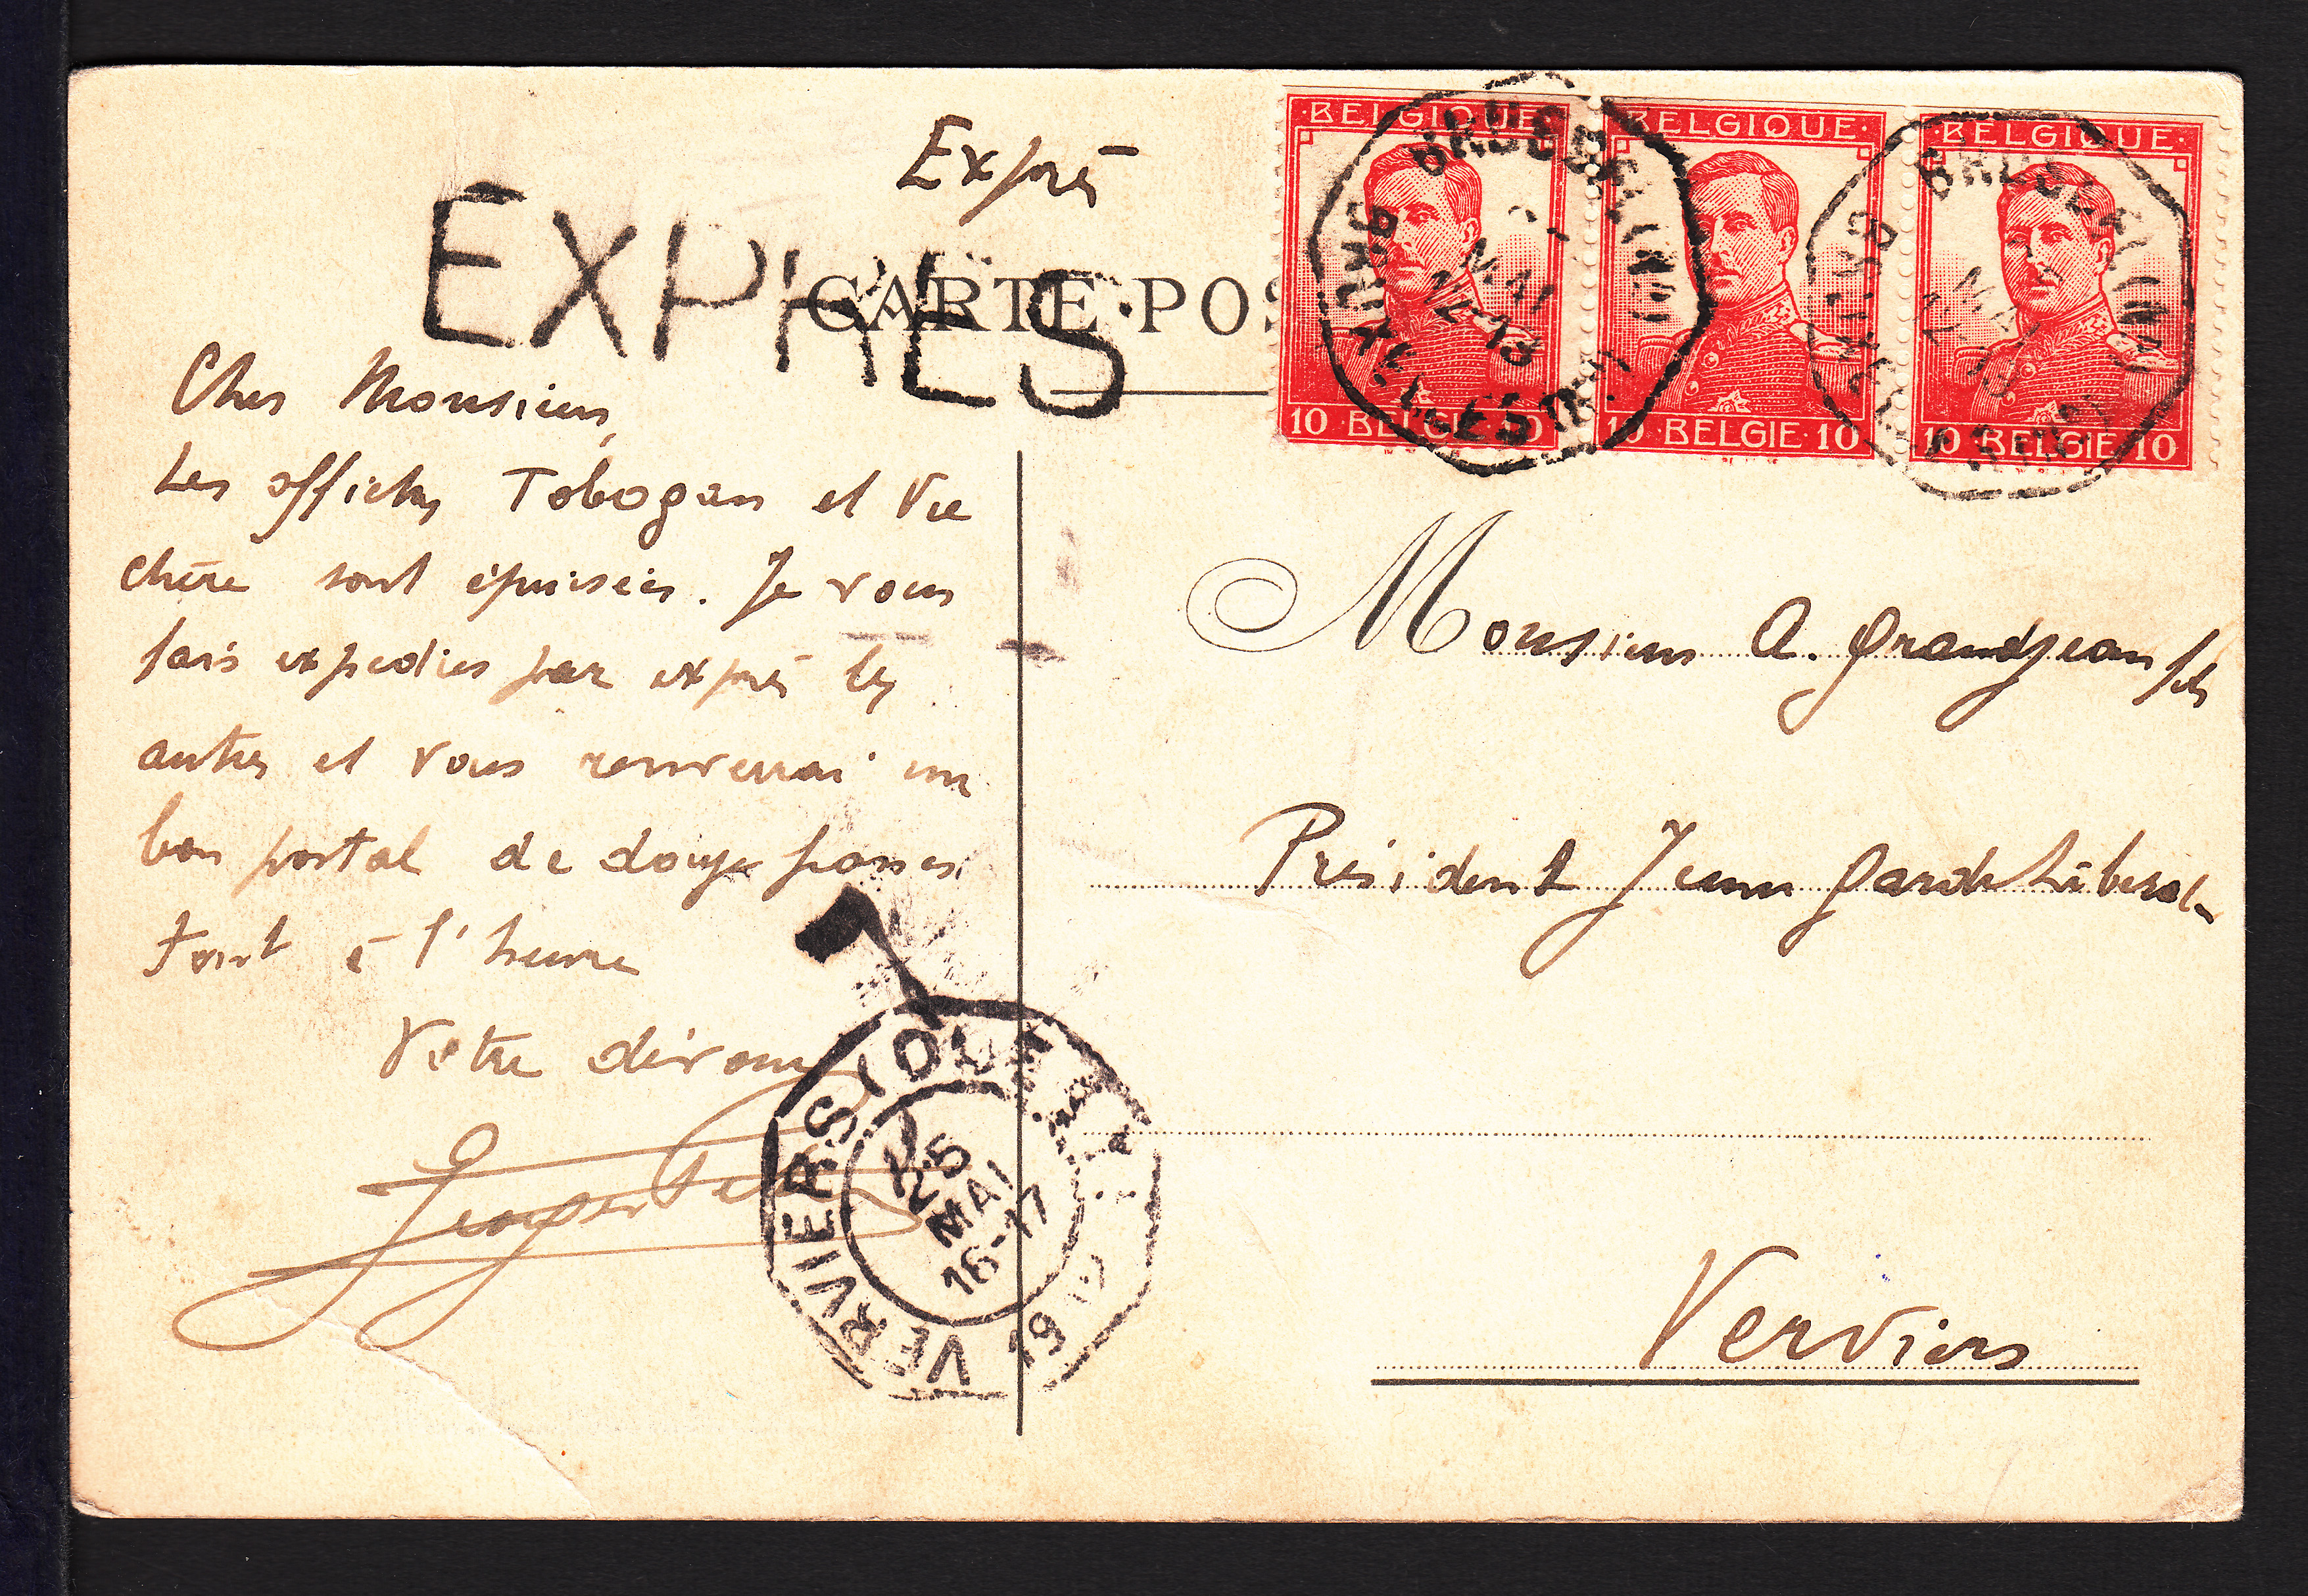 Exprès
EXPRES
CARTE POS
BELGIQUE
BELGIQUE
BELGIQUE
10 BELGIE 10
10 BELGIE 10
10 BELGIE 10
MAI
12-13
Cher Monsieur,
Les affiches Tobogan et Vie
chère sont épuisées. Je vous
fais expedier par exprès les
autres et vous renverrai un
bon postal de douze francs.
Tout à l'heure
Votre dévoué
Monsieur A. Grandjean fils
Président Jeune Garde Libérale
Verviers
VERVIERS (OUEST)
25
MAI
16-17